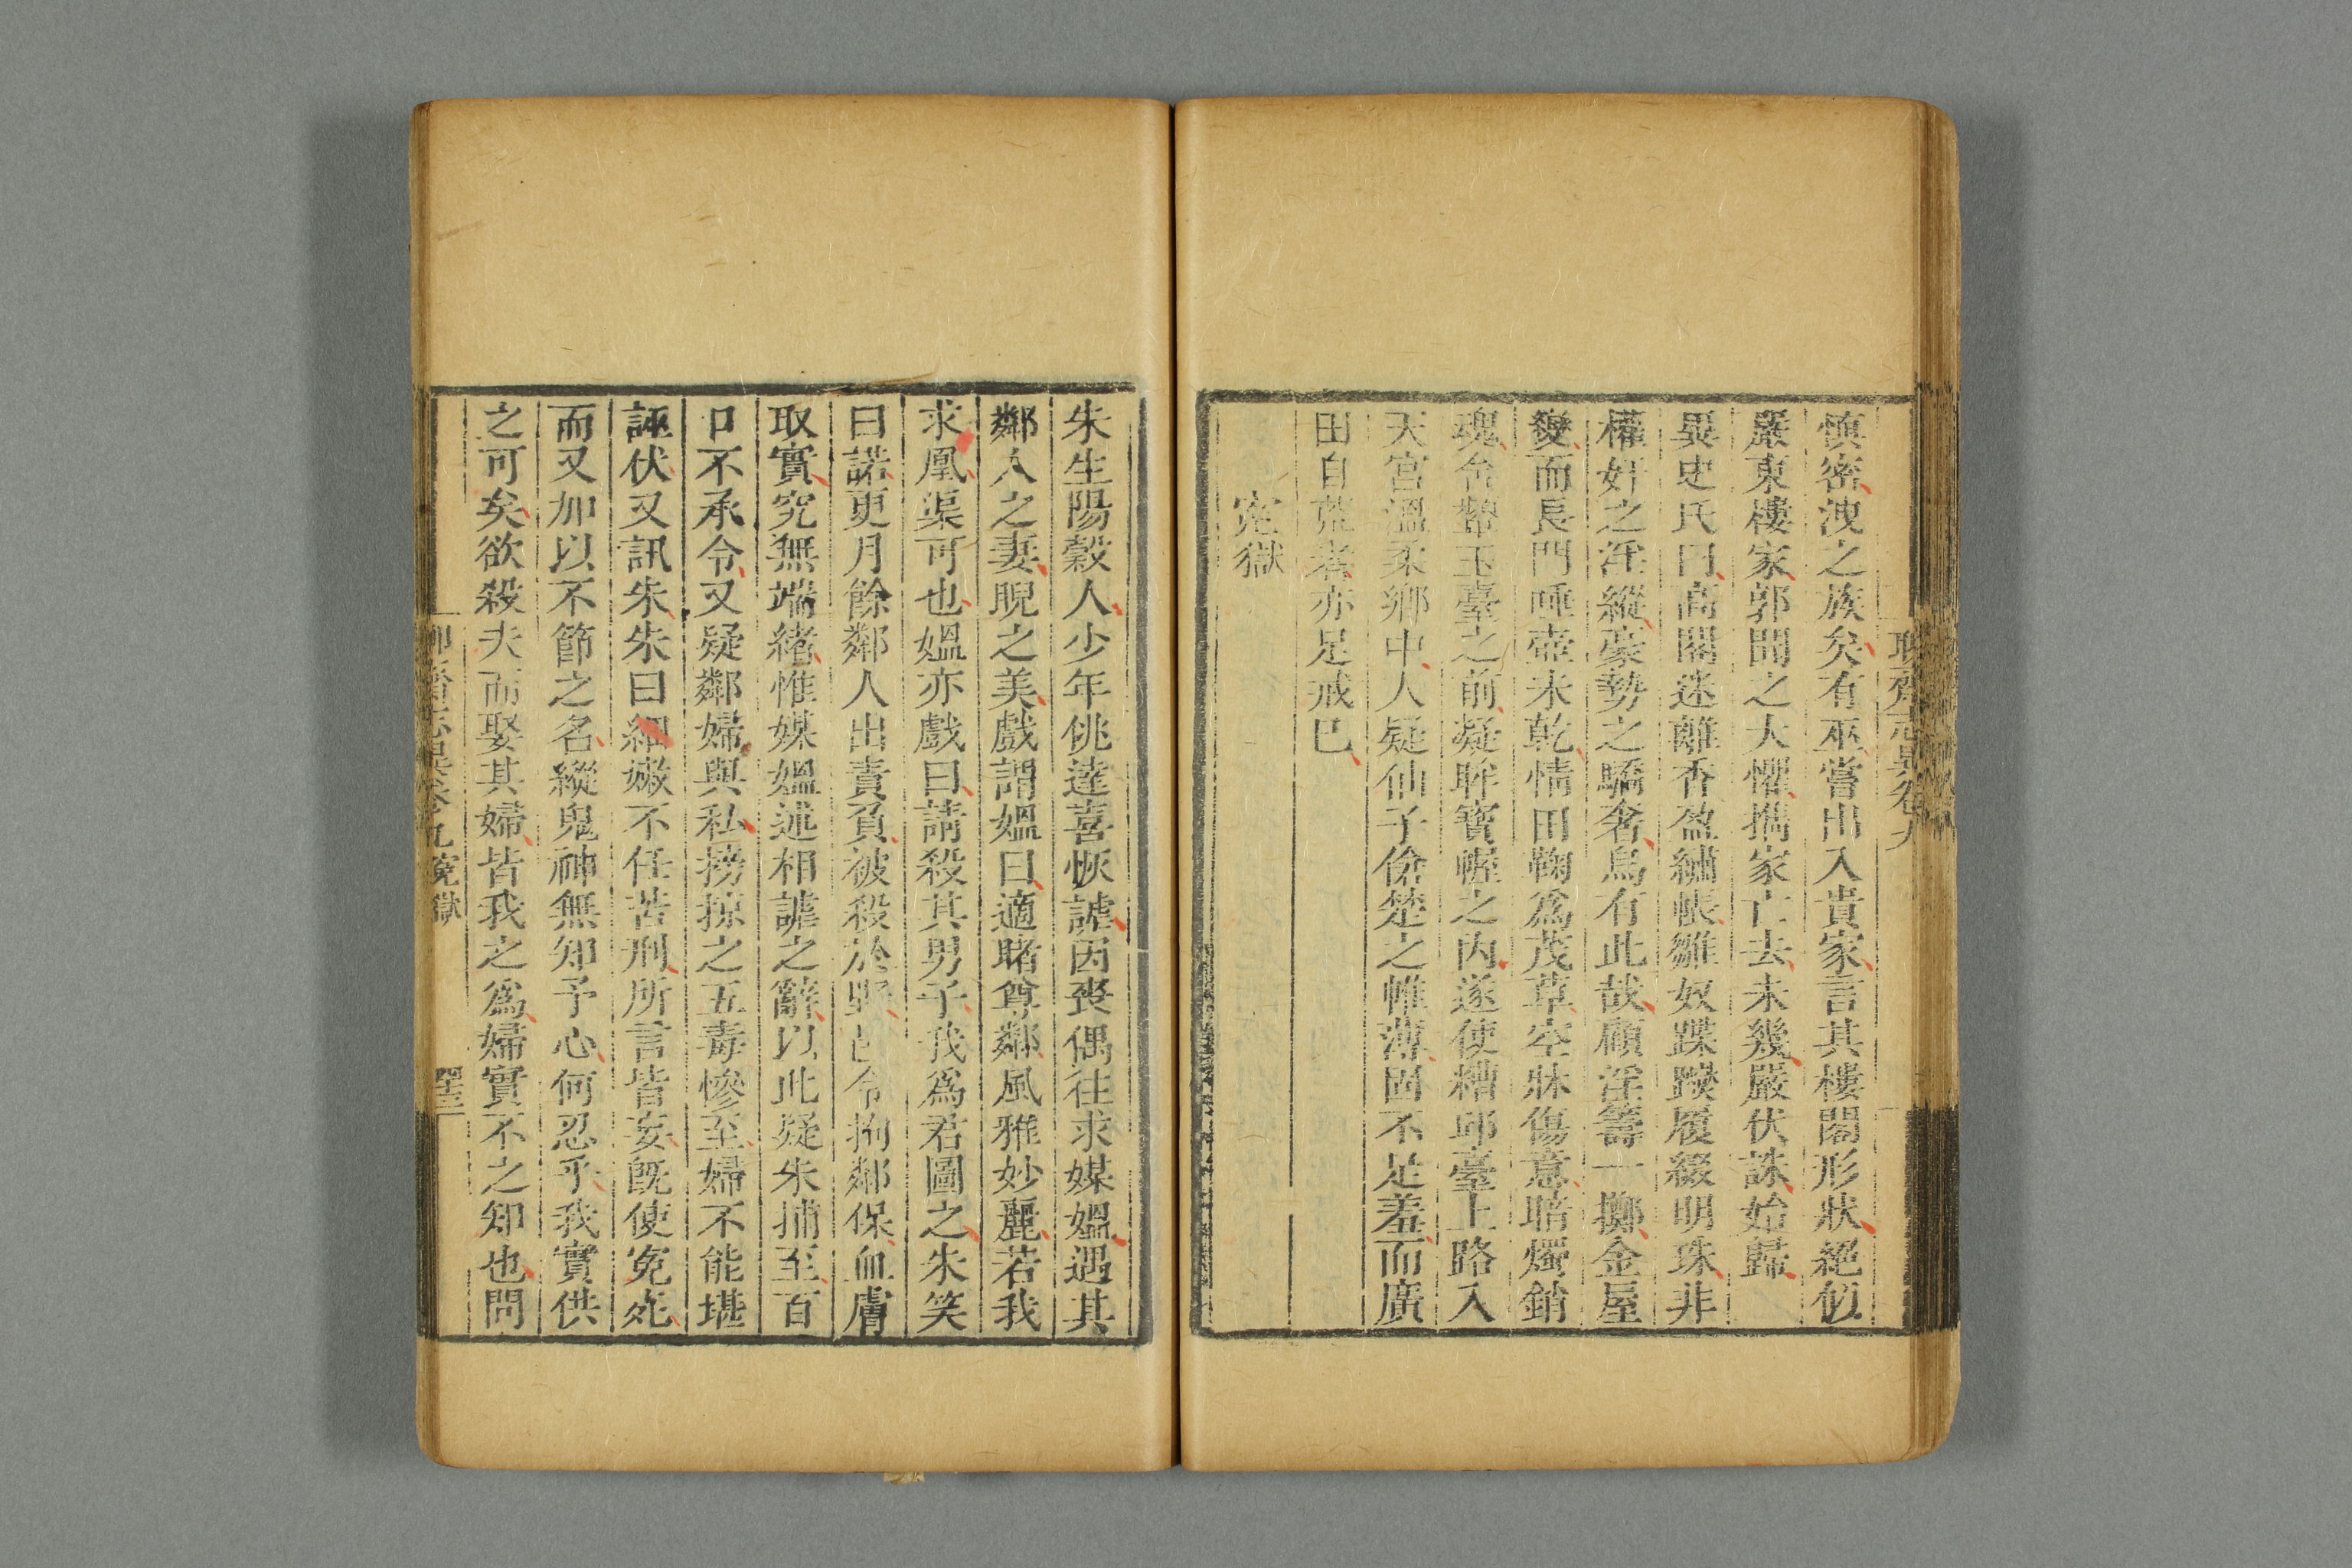 聊齋志異卷九
慎密洩之族矣有巫嘗出入貴家言其樓閣形狀絕似
嚴東樓家郭聞之大懼攜家亡去未幾嚴伏誅始歸
異史氏曰高閣迷離香盈繡帳雛奴蹀躞履綴明珠非
權奸之淫縱豪勢之驕奢烏有此哉顧淫籌一擲金屋
變而長門唾壺未乾情田鞠為茂草空牀傷意暗燭銷
魂含顰玉臺之前凝眸寶幄之內遂使糟邱臺上路入
天宮溫柔鄉中人疑仙子傖楚之帷薄固不足羞而廣
田自荒者亦足戒已
冤獄
朱生陽穀人少年佻達喜恢謔因喪偶往求媒媼遇其
鄰人之妻睨之美戲謂媼曰適睹尊鄰風雅妙麗若我
求凰渠可也媼亦戲曰請殺其男子我為君圖之朱笑
曰諾更月餘鄰人出責負被殺於野邑令拘鄰保血膚
取實究無端緒惟媒媼述相謔之辭以此疑朱捕至百
口不承令又疑鄰婦與私搒掠之五毒慘至婦不能堪
誣伏又訊朱朱曰細嫩不任苦刑所言皆妄既使冤死
而又加以不節之名縱鬼神無知予心何忍乎我實供
之可矣欲殺夫而娶其婦皆我之為婦實不之知也問
聊齋志異卷九 冤獄